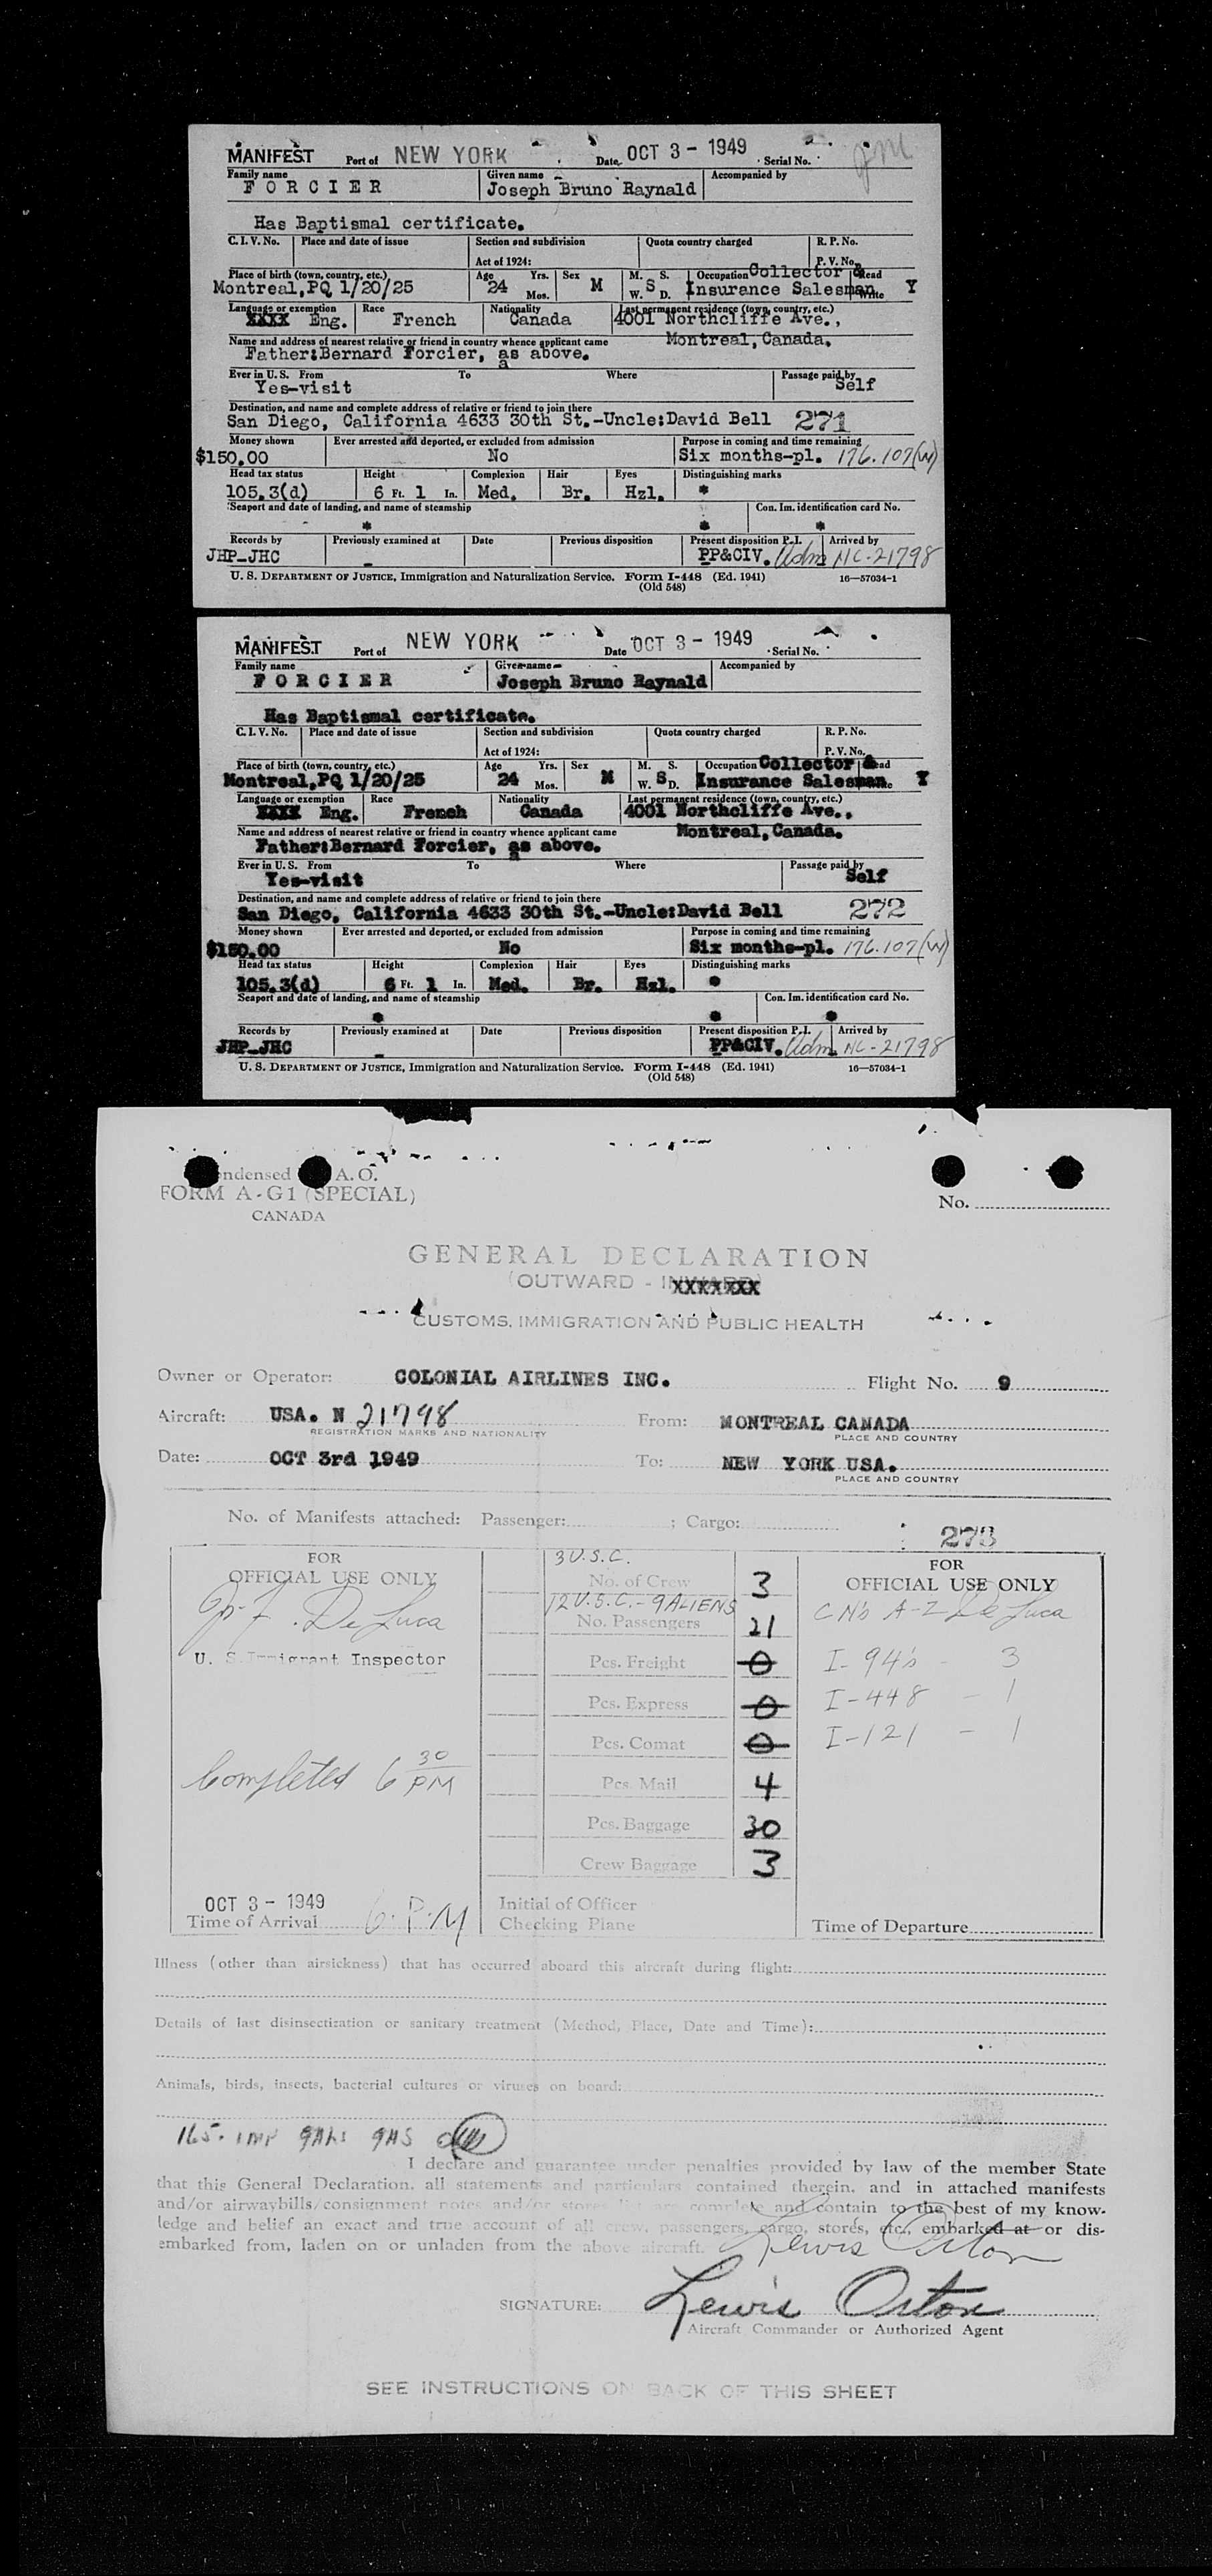 MANIFEST Port of NEW YORK Date OCT 3 - 1949 Serial No.
Family name Given name Accompanied by
FORCIER Joseph Bruno Raynald
Has Baptismal certificate.
C. I. V. No. Place and date of issue Section and subdivision Quota country charged R. P. No.
Act of 1924: P. V. No.
Place of birth (town, country, etc.) Age Yrs. Sex M. S. Occupation Collector & Read
Montreal,PQ 1/20/25 24 Mos. M W. S D. Insurance Salesman Write Y
Language or exemption Race Nationality Last permanent residence (town, country, etc.)
XXXX Eng. French Canada 4001 Northcliffe Ave.,
Name and address of nearest relative or friend in country whence applicant came Montreal, Canada.
Father:Bernard Forcier, as above.
a
Ever in U. S. From To Where Passage paid by
Yes-visit Self
Destination, and name and complete address of relative or friend to join there
San Diego, California 4633 30th St.-Uncle:David Bell 271
Money shown Ever arrested and deported, or excluded from admission Purpose in coming and time remaining
$150.00 No Six months-pl. 176.107(W)
Head tax status Height Complexion Hair Eyes Distinguishing marks
105.3(d) 6 Ft. 1 In. Med. Br. Hzl. *
Seaport and date of landing, and name of steamship Con. Im. identification card No.
* * *
Records by Previously examined at Date Previous disposition Present disposition P.I. Arrived by
JHP_JHC PP&CIV. Adm NC-21798
U. S. DEPARTMENT OF JUSTICE, Immigration and Naturalization Service. Form I-448 (Ed. 1941) 16—57034-1
(Old 548)
MANIFEST Port of NEW YORK Date OCT 3 - 1949 Serial No.
Family name Given name Accompanied by
FORCIER Joseph Bruno Raynald
Has Baptismal certificate.
C. I. V. No. Place and date of issue Section and subdivision Quota country charged R. P. No.
Act of 1924: P. V. No.
Place of birth (town, country, etc.) Age Yrs. Sex M. S. Occupation Collector & Read
Montreal,PQ 1/20/25 24 Mos. M W. S D. Insurance Salesman Y
Language or exemption Race Nationality Last permanent residence (town, country, etc.)
XXXX Eng. French Canada 4001 Northcliffe Ave.,
Name and address of nearest relative or friend in country whence applicant came Montreal, Canada.
Father:Bernard Forcier, as above.
a
Ever in U. S. From To Where Passage paid by
Yes-visit Self
Destination, and name and complete address of relative or friend to join there
San Diego, California 4633 30th St.-Uncle:David Bell 272
Money shown Ever arrested and deported, or excluded from admission Purpose in coming and time remaining
$150.00 No Six months-pl. 176.107(W)
Head tax status Height Complexion Hair Eyes Distinguishing marks
105.3(d) 6 Ft. 1 In. Med. Br. Hzl. *
Seaport and date of landing, and name of steamship Con. Im. identification card No.
* * *
Records by Previously examined at Date Previous disposition Present disposition P.I. Arrived by
JHP_JHC PP&CIV. Adm. NC-21798
U. S. DEPARTMENT OF JUSTICE, Immigration and Naturalization Service. Form I-448 (Ed. 1941) 16—57034-1
(Old 548)
ndensed A. O.
FORM A-G1 (SPECIAL) No.
CANADA
GENERAL DECLARATION
(OUTWARD - INWARD)
CUSTOMS, IMMIGRATION AND PUBLIC HEALTH
Owner or Operator: COLONIAL AIRLINES INC. Flight No. 9
Aircraft: USA. N 21798 From: MONTREAL CANADA
REGISTRATION MARKS AND NATIONALITY PLACE AND COUNTRY
Date: OCT 3rd 1949 To: NEW YORK USA.
PLACE AND COUNTRY
No. of Manifests attached: Passenger: ; Cargo: 273
FOR 3 U.S.C. FOR
OFFICIAL USE ONLY No. of Crew 3 OFFICIAL USE ONLY
De Luca 12 U.S.C. - 9 ALIENS CN's A-Z De Luca
No. Passengers 21
U. S. Immigrant Inspector Pcs. Freight 0 I-94's - 3
Pcs. Express 0 I-448 - 1
Pcs. Comat 0 I-121 - 1
Completed 6 30 PM Pcs. Mail 4
Pcs. Baggage 30
Crew Baggage 3
OCT 3 - 1949 Initial of Officer
Time of Arrival 6. P.M Checking Plane Time of Departure
Illness (other than airsickness) that has occurred aboard this aircraft during flight:
Details of last disinsectization or sanitary treatment (Method, Place, Date and Time):
Animals, birds, insects, bacterial cultures or viruses on board:
165. IMP GALS GAS
I declare and guarantee under penalties provided by law of the member State
that this General Declaration, all statements and particulars contained therein, and in attached manifests
and/or airwaybills/consignment notes and/or stores list are complete and contain to the best of my know-
ledge and belief an exact and true account of all crew, passengers, cargo, stores, etc., embarked at or dis-
embarked from, laden on or unladen from the above aircraft. Lewis Orton
SIGNATURE: Lewis Orton
Aircraft Commander or Authorized Agent
SEE INSTRUCTIONS ON BACK OF THIS SHEET